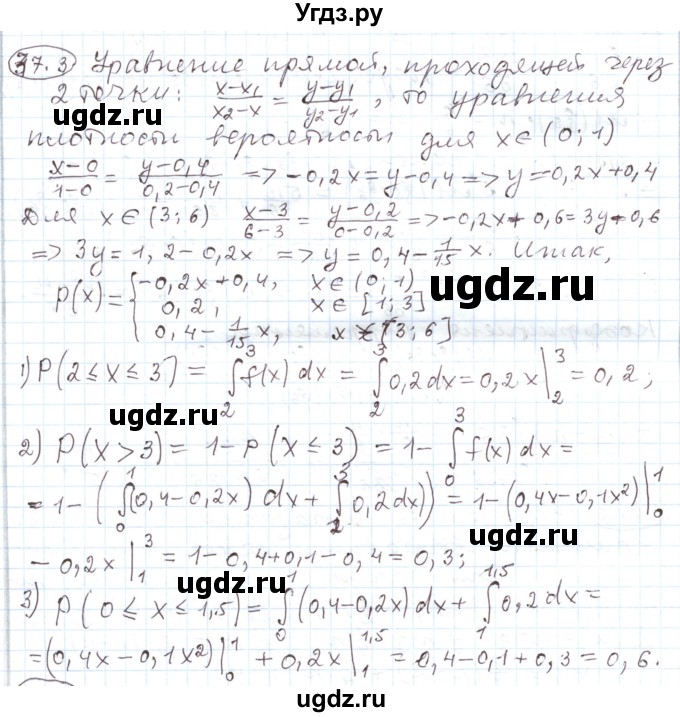 Угдз.ру
37.3 Уравнение прямой, проходящей через
2 точки: (x-x₁)/(x₂-x) = (y-y₁)/(y₂-y₁), то уравнения
плотности вероятности для x∈(0;1)
(x-0)/(1-0) = (y-0,4)/(0,2-0,4) => -0,2x=y-0,4 => y=-0,2x+0,4
Для x∈(3;6) (x-3)/(6-3) = (y-0,2)/(0-0,2) => -0,2x+0,6=3y-0,6
=> 3y=1,2-0,2x => y=0,4-1/15 x. Итак,
p(x)= { -0,2x+0,4, x∈(0;1)
0,2, x∈[1;3]
0,4-1/15 x, x∈[3;6]
1) P(2≤x≤3) = ∫₂³ f(x)dx = ∫₂³ 0,2dx=0,2x|₂³=0,2;
2) P(X>3)=1-P(X≤3)=1-∫₀³ f(x)dx=
=1-(∫₀¹(0,4-0,2x)dx+∫₁³ 0,2dx))=1-(0,4x-0,1x²)|₀¹
-0,2x|₁³=1-0,4+0,1-0,4=0,3;
3) P(0≤x≤1,5)=∫₀¹(0,4-0,2x)dx+∫₁^1,5 0,2dx=
=(0,4x-0,1x²)|₀¹+0,2x|₁^1,5=0,4-0,1+0,3=0,6.
ugdz.ru
ugdz.ru
ugdz.ru
ugdz.ru
ugdz.ru
ugdz.ru
ugdz.ru
ugdz.ru
ugdz.ru
ugdz.ru